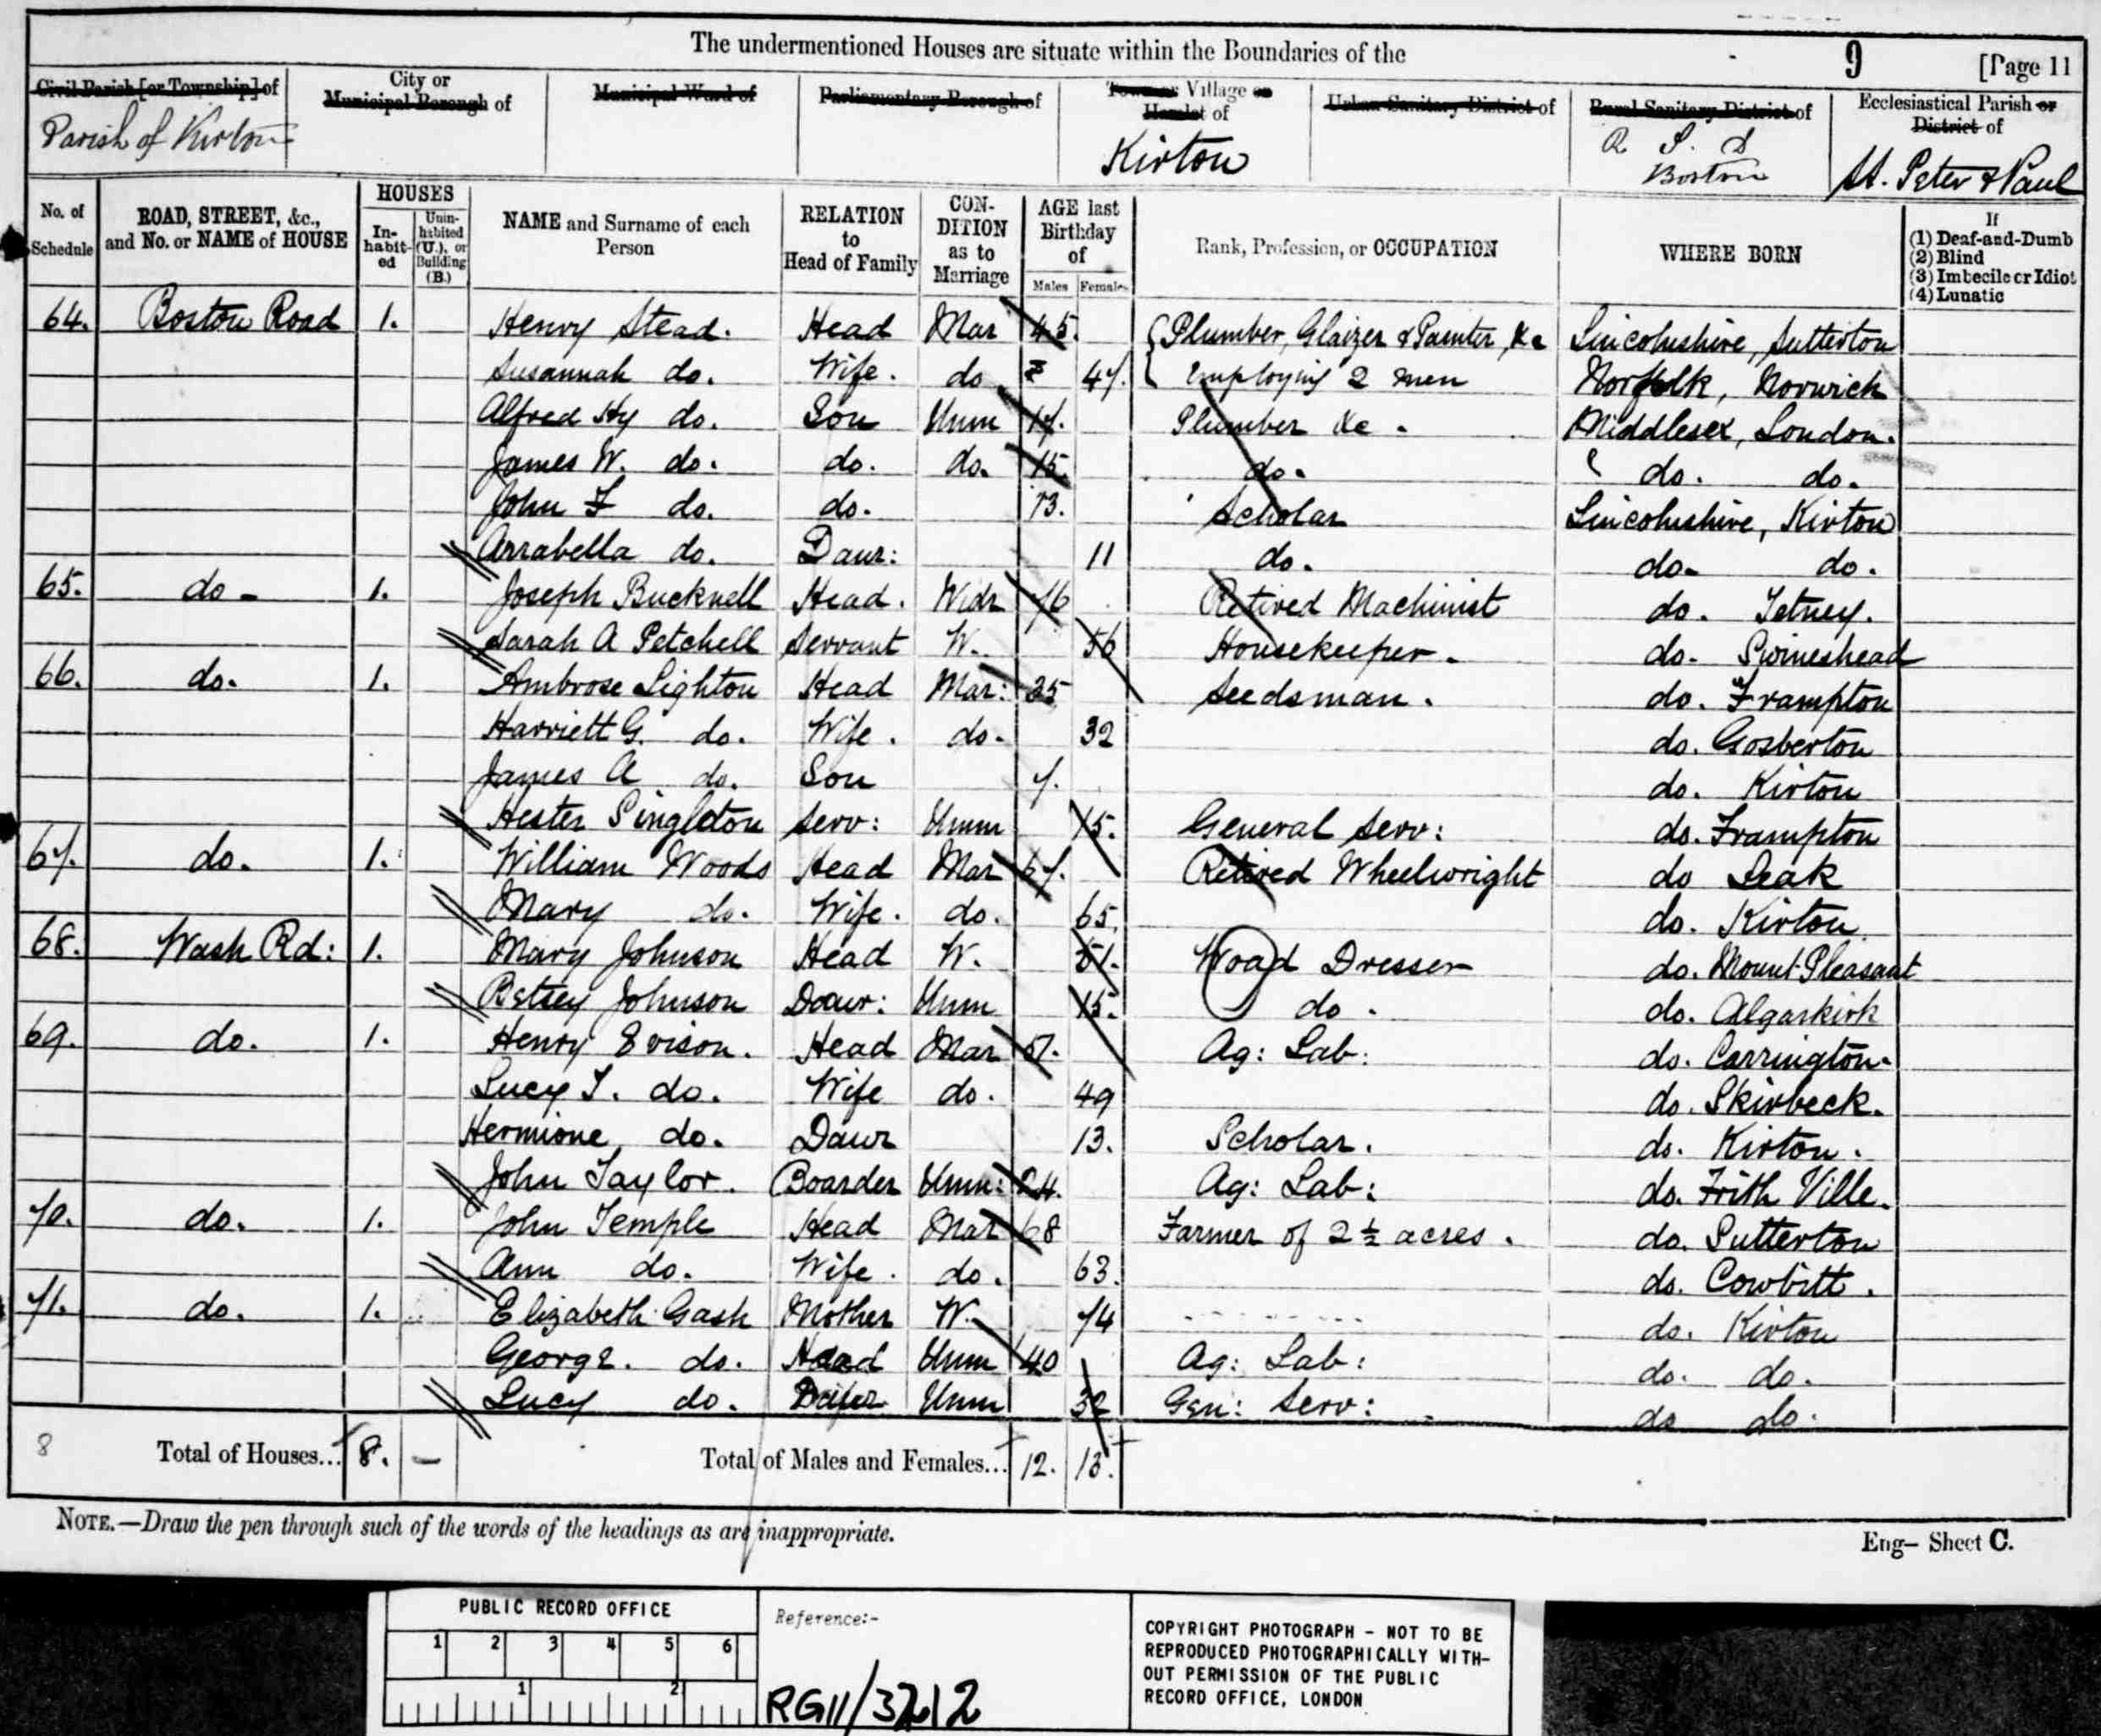 The undermentioned Houses are situate within the Boundaries of the
9 [Page 11
Civil Parish [or Township] of
Parish of Kirton
City or Municipal Borough of
Municipal Ward of
Parliamentary Borough of
Town or Village or Hamlet of
Kirton
Urban Sanitary District of
Rural Sanitary District of
R S. D
Boston
Ecclesiastical Parish or District of
St. Peter & Paul
No. of Schedule
ROAD, STREET, &c., and No. or NAME of HOUSE
HOUSES
In-habit-ed
Unin-habited (U.), or Building (B.)
NAME and Surname of each Person
RELATION to Head of Family
CON-DITION as to Marriage
AGE last Birthday of
Males Females
Rank, Profession, or OCCUPATION
WHERE BORN
If
(1) Deaf-and-Dumb
(2) Blind
(3) Imbecile or Idiot
(4) Lunatic
64. Boston Road 1. Henry Stead. Head Mar 45. Plumber, Glaizer & Painter, &c Lincolnshire, Sutterton
Susannah do. Wife. do 47. Employing 2 men Norfolk, Norwich
Alfred Hy do. Son Unm 17. Plumber &c. Middlesex, London.
James W. do. do. do. 15. do. do. do.
John F do. do. 13. Scholar Lincolnshire, Kirton
Arrabella do. Daur: 11 do. do. do.
65. do 1. Joseph Bucknell Head. Widr 76 Retired Machinist do. Tetney.
Sarah A Petchell Servant W. 56 Housekeeper. do. Swineshead
66. do. 1. Ambrose Lighton Head Mar: 35 Seedsman. do. Frampton
Harriett G. do. Wife. do. 32 do. Gosberton
James A do. Son 7. do. Kirton
Hester Singleton Serv: Unm 15. General Serv: do. Frampton
67. do. 1. William Woods Head Mar 67. Retired Wheelwright do Leak
Mary do. Wife. do. 65. do. Kirton
68. Wash Rd: 1. Mary Johnson Head W. 51. Woad Dresser do. Mount Pleasant
Betsey Johnson Daur: Unm 15. do. do. Algarkirk
69. do. 1. Henry Evison. Head Mar 57. Ag: Lab: do. Carrington.
Lucy T. do. Wife do. 49 do. Skirbeck.
Hermione do. Daur 13. Scholar. do. Kirton.
John Taylor. Boarder Unm: 24. Ag: Lab: do. Frith Ville.
70. do. 1. John Temple Head Mar 68 Farmer of 2 ½ acres. do. Sutterton
Ann do. Wife. do. 63. do. Cowbitt.
71. do. 1. Elizabeth Gash Mother W. 74 do. Kirton
George. do. Head Unm 40 Ag: Lab: do. do.
Lucy do. Unm 32 Gen: Serv: do do.
8 Total of Houses... 8. — Total of Males and Females... 12. 13.
NOTE.—Draw the pen through such of the words of the headings as are inappropriate.
Eng— Sheet C.
PUBLIC RECORD OFFICE
1 2 3 4 5 6
1 2
Reference:-
RG11/3212
COPYRIGHT PHOTOGRAPH - NOT TO BE
REPRODUCED PHOTOGRAPHICALLY WITH-
OUT PERMISSION OF THE PUBLIC
RECORD OFFICE, LONDON